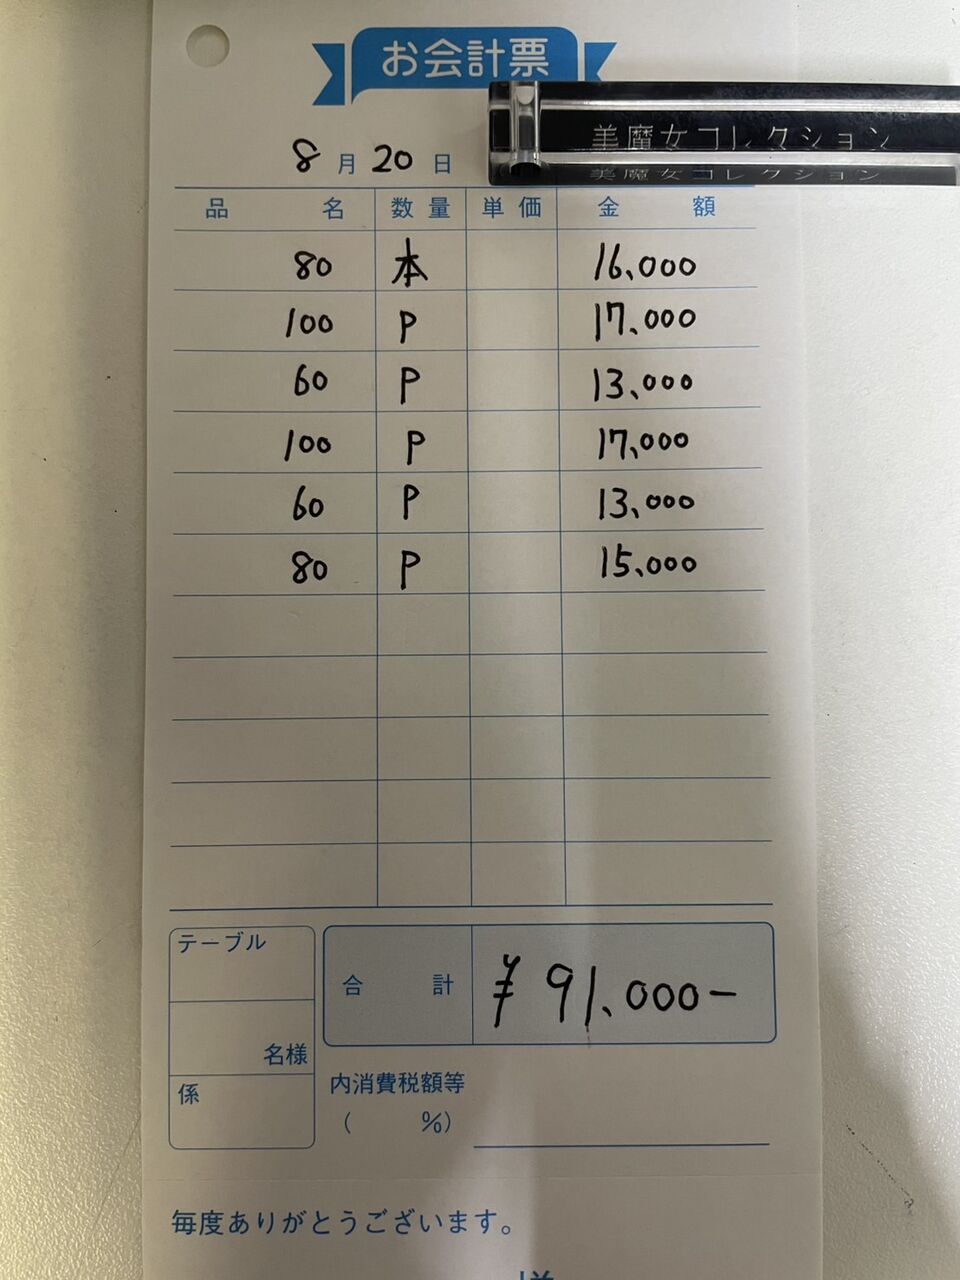 お会計票
美魔女コレクション
美魔女コレクション
8月20日
品名 数量 単価 金額
80 本 16,000
100 P 17,000
60 P 13,000
100 P 17,000
60 P 13,000
80 P 15,000
テーブル
合計 ¥91,000-
名様
係
内消費税額等
( %)
毎度ありがとうございます。